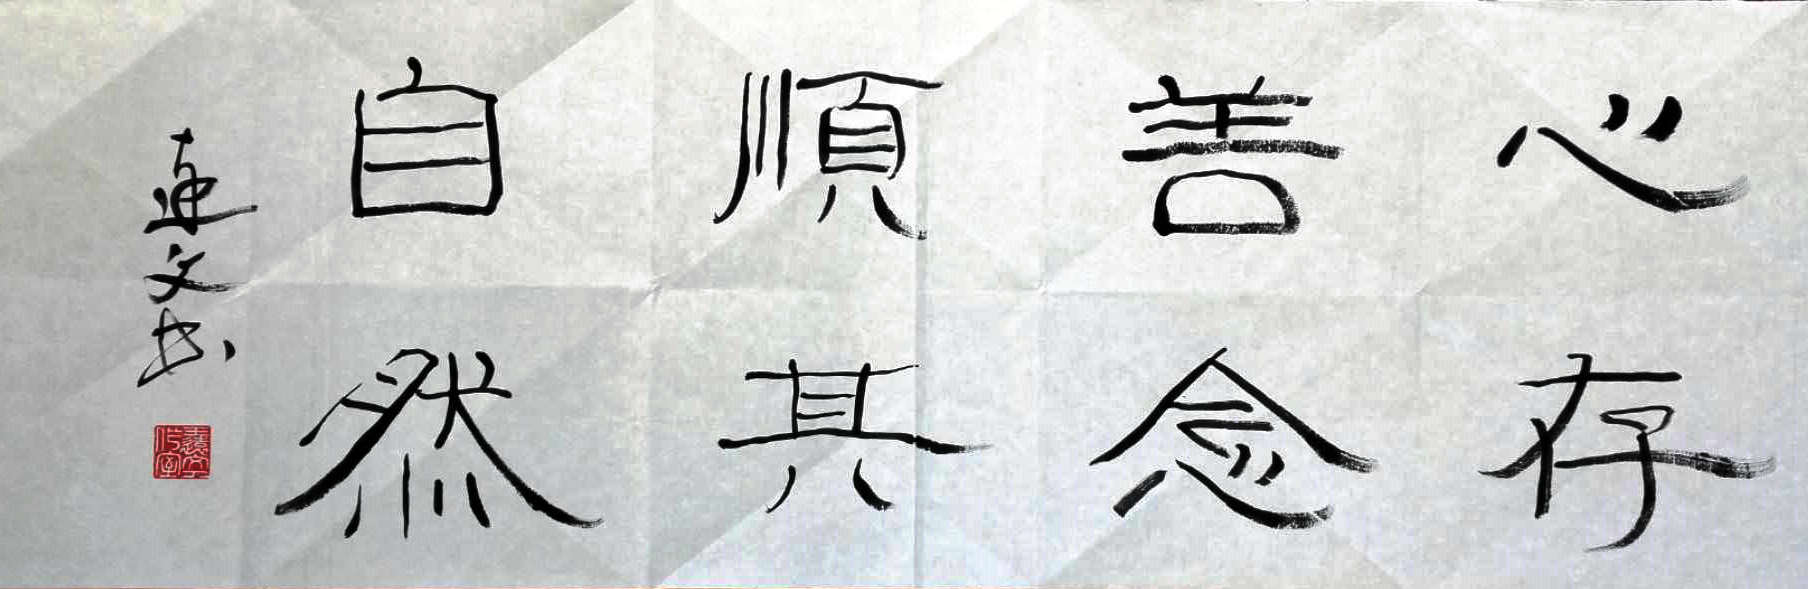 心存
善念
順其
自然
連文书